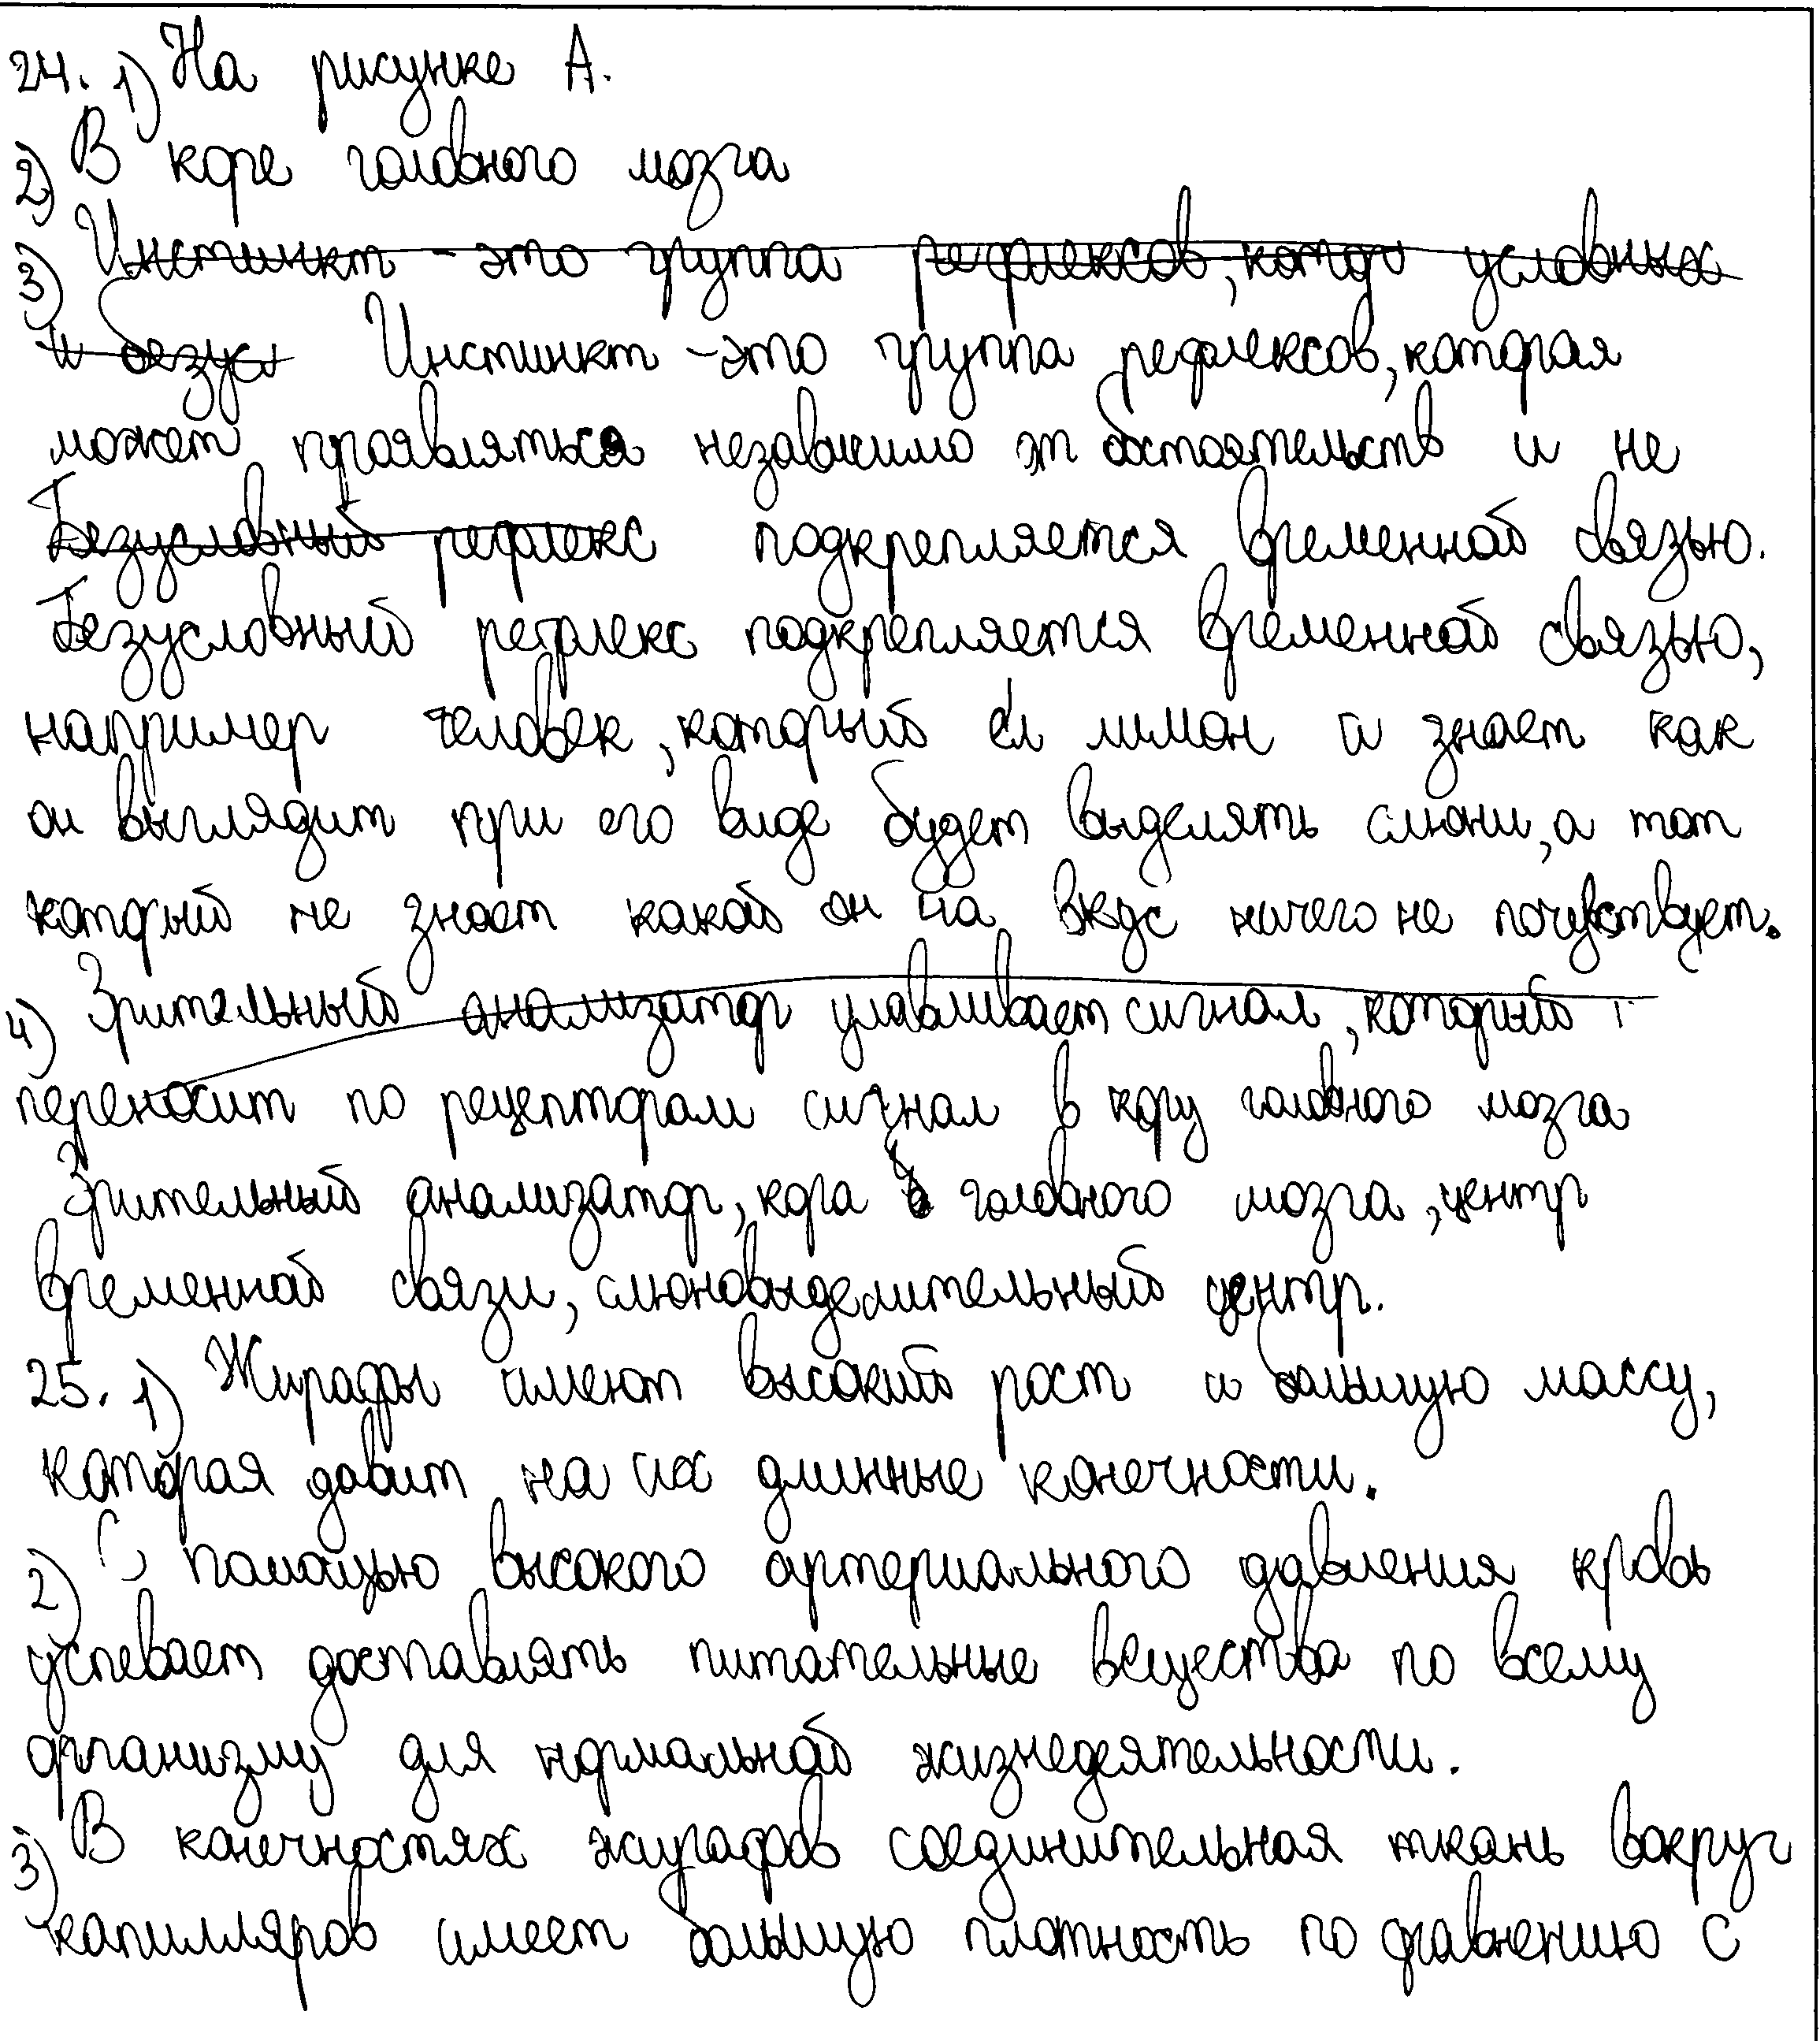 24. 1) На рисунке А.
2) В коре головного мозга
3) Инстинкт - это группа рефлексов, которо условных
и безусл Инстинкт - это группа рефлексов, которая
может проявляться независимо от обстоятельств и не
Безусловный рефлекс подкрепляется временной связью.
Безусловный рефлекс подкрепляется временной связью,
например человек, который ел лимон и знает как
он выглядит при его виде будет выделять слюни, а тот
который не знает какой он на вкус ничего не почувствует.
4) Зрительный анализатор улавливает сигнал, который
переносит по рецепторам сигнал в кору головного мозга
Зрительный анализатор, кора головного мозга, центр
временной связи, слюновыделительный центр.
25. 1) Жирафы имеют высокий рост и большую массу,
которая давит на их длинные конечности.
2) С помощью высокого артериального давления кровь
успевает доставлять питательные вещества по всему
организму для нормальной жизнедеятельности.
3) В конечностях жирафов соединительная ткань вокруг
капилляров имеет большую плотность по сравнению с